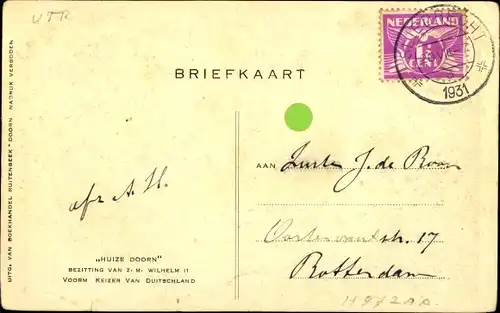 UTR
NEDERLAND
1½
CENT
1931
BRIEFKAART
AAN Zuster J. de Boon
Oostervantstr. 17
Rotterdam
afz A. H.
„HUIZE DOORN"
BEZITTING VAN Z. M. WILHELM II
VOORM KEIZER VAN DUITSCHLAND
UITG. VAN BOEKHANDEL RUITENBEEK - DOORN. NADRUK VERBODEN